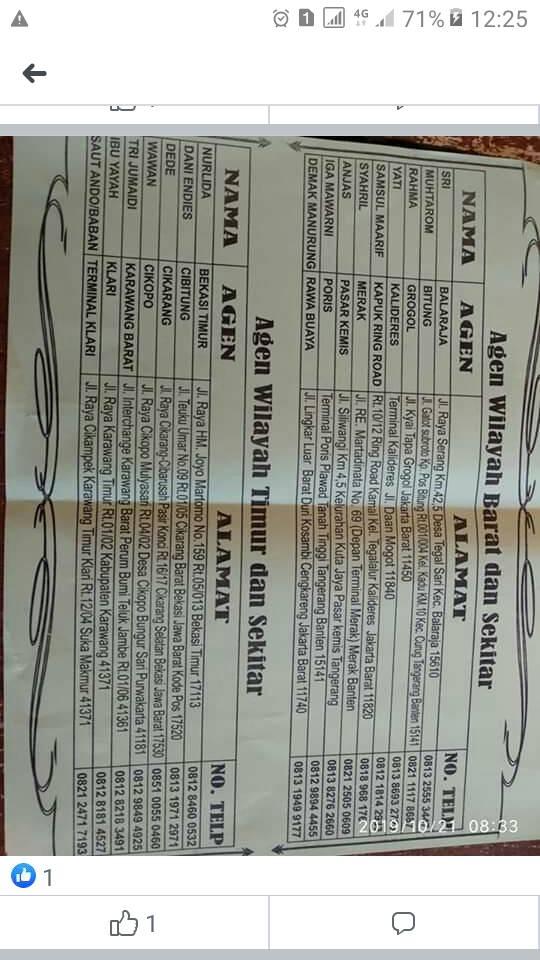 71% 12:25
4G
1
Agen Wilayah Barat dan Sekitar
NAMA AGEN ALAMAT NO. TELP
SRI BALARAJA Jl. Raya Serang Km.42,5 Desa Tegal Sari Kec. Balaraja 15610
MUHTAROM BITUNG Jl. Gatot subroto Kp. Pos Bitung Rt.001/004 Kel. Kadu KM.10 Kec. Curug Tangerang Banten 15141 0813 2555
RAHMA GROGOL Jl. Kyai Tapa Grogol Jakarta Barat 11450 0821 1117
YATI KALIDERES Terminal Kalideres Jl. Daan Mogot 11840 0813 8693
SAMSUL MAARIF KAPUK RING ROAD Rt.10/12 Ring Road Kamal Kel. Tegalalur Kalideres Jakarta Barat 11820 0812 1814
SYAHRIL MERAK Jl. RE. Martadinata No. 69 (Depan Terminal Merak) Merak Banten 0818 968
ANJAS PASAR KEMIS Jl. Siliwangi Km 4,5 Kelurahan Kuta Jaya Pasar kemis Tangerang 0821 2505 0609
IGA MAWARNI PORIS Terminal Poris Plawad Tanah Tinggi Tangerang Banten 15141 0813 8276 2660
DEMAK MANURUNG RAWA BUAYA Jl. Lingkar Luar Barat Duri Kosambi Cengkareng Jakarta Barat 11740 0812 9894 4455
0813 1949 9177
2019/10/21 08:33
Agen Wilayah Timur dan Sekitar
NAMA AGEN ALAMAT NO. TELP
NURLIDA BEKASI TIMUR Jl. Raya HM. Joyo Martomo No. 159 Rt.05/013 Bekasi Timur 17113 0812 8460 0532
DANI ENDIES CIBITUNG Jl. Teuku Umar No.09 Rt.01/05 Cikarang Barat Bekasi Jawa Barat Kode Pos 17520 0813 1971 2971
DEDE CIKARANG Jl. Raya Cikarang-Cibarusah Pasir Konci Rt 16/17 Cikarang Selatan Bekasi Jawa Barat 17530 0851 0055 0460
WAWAN CIKOPO Jl. Raya Cikopo Mulyasari Rt.04/02 Desa Cikopo Bungur Sari Purwakarta 41181 0812 9849 4925
TRI JUMAIDI KARAWANG BARAT Jl. Interchange Karawang Barat Perum Bumi Teluk Jambe Rt.01/06 41361 0812 8218 3491
IBU YAYAH KLARI Jl. Raya Karawang Timur Rt.01/02 Kabupaten Karawang 41371 0812 8181 4527
SAUT ANDO/BABAN TERMINAL KLARI Jl. Raya Cikampek Karawang Timur Klari Rt.12/04 Suka Makmur 41371 0821 2471 7193
1
1